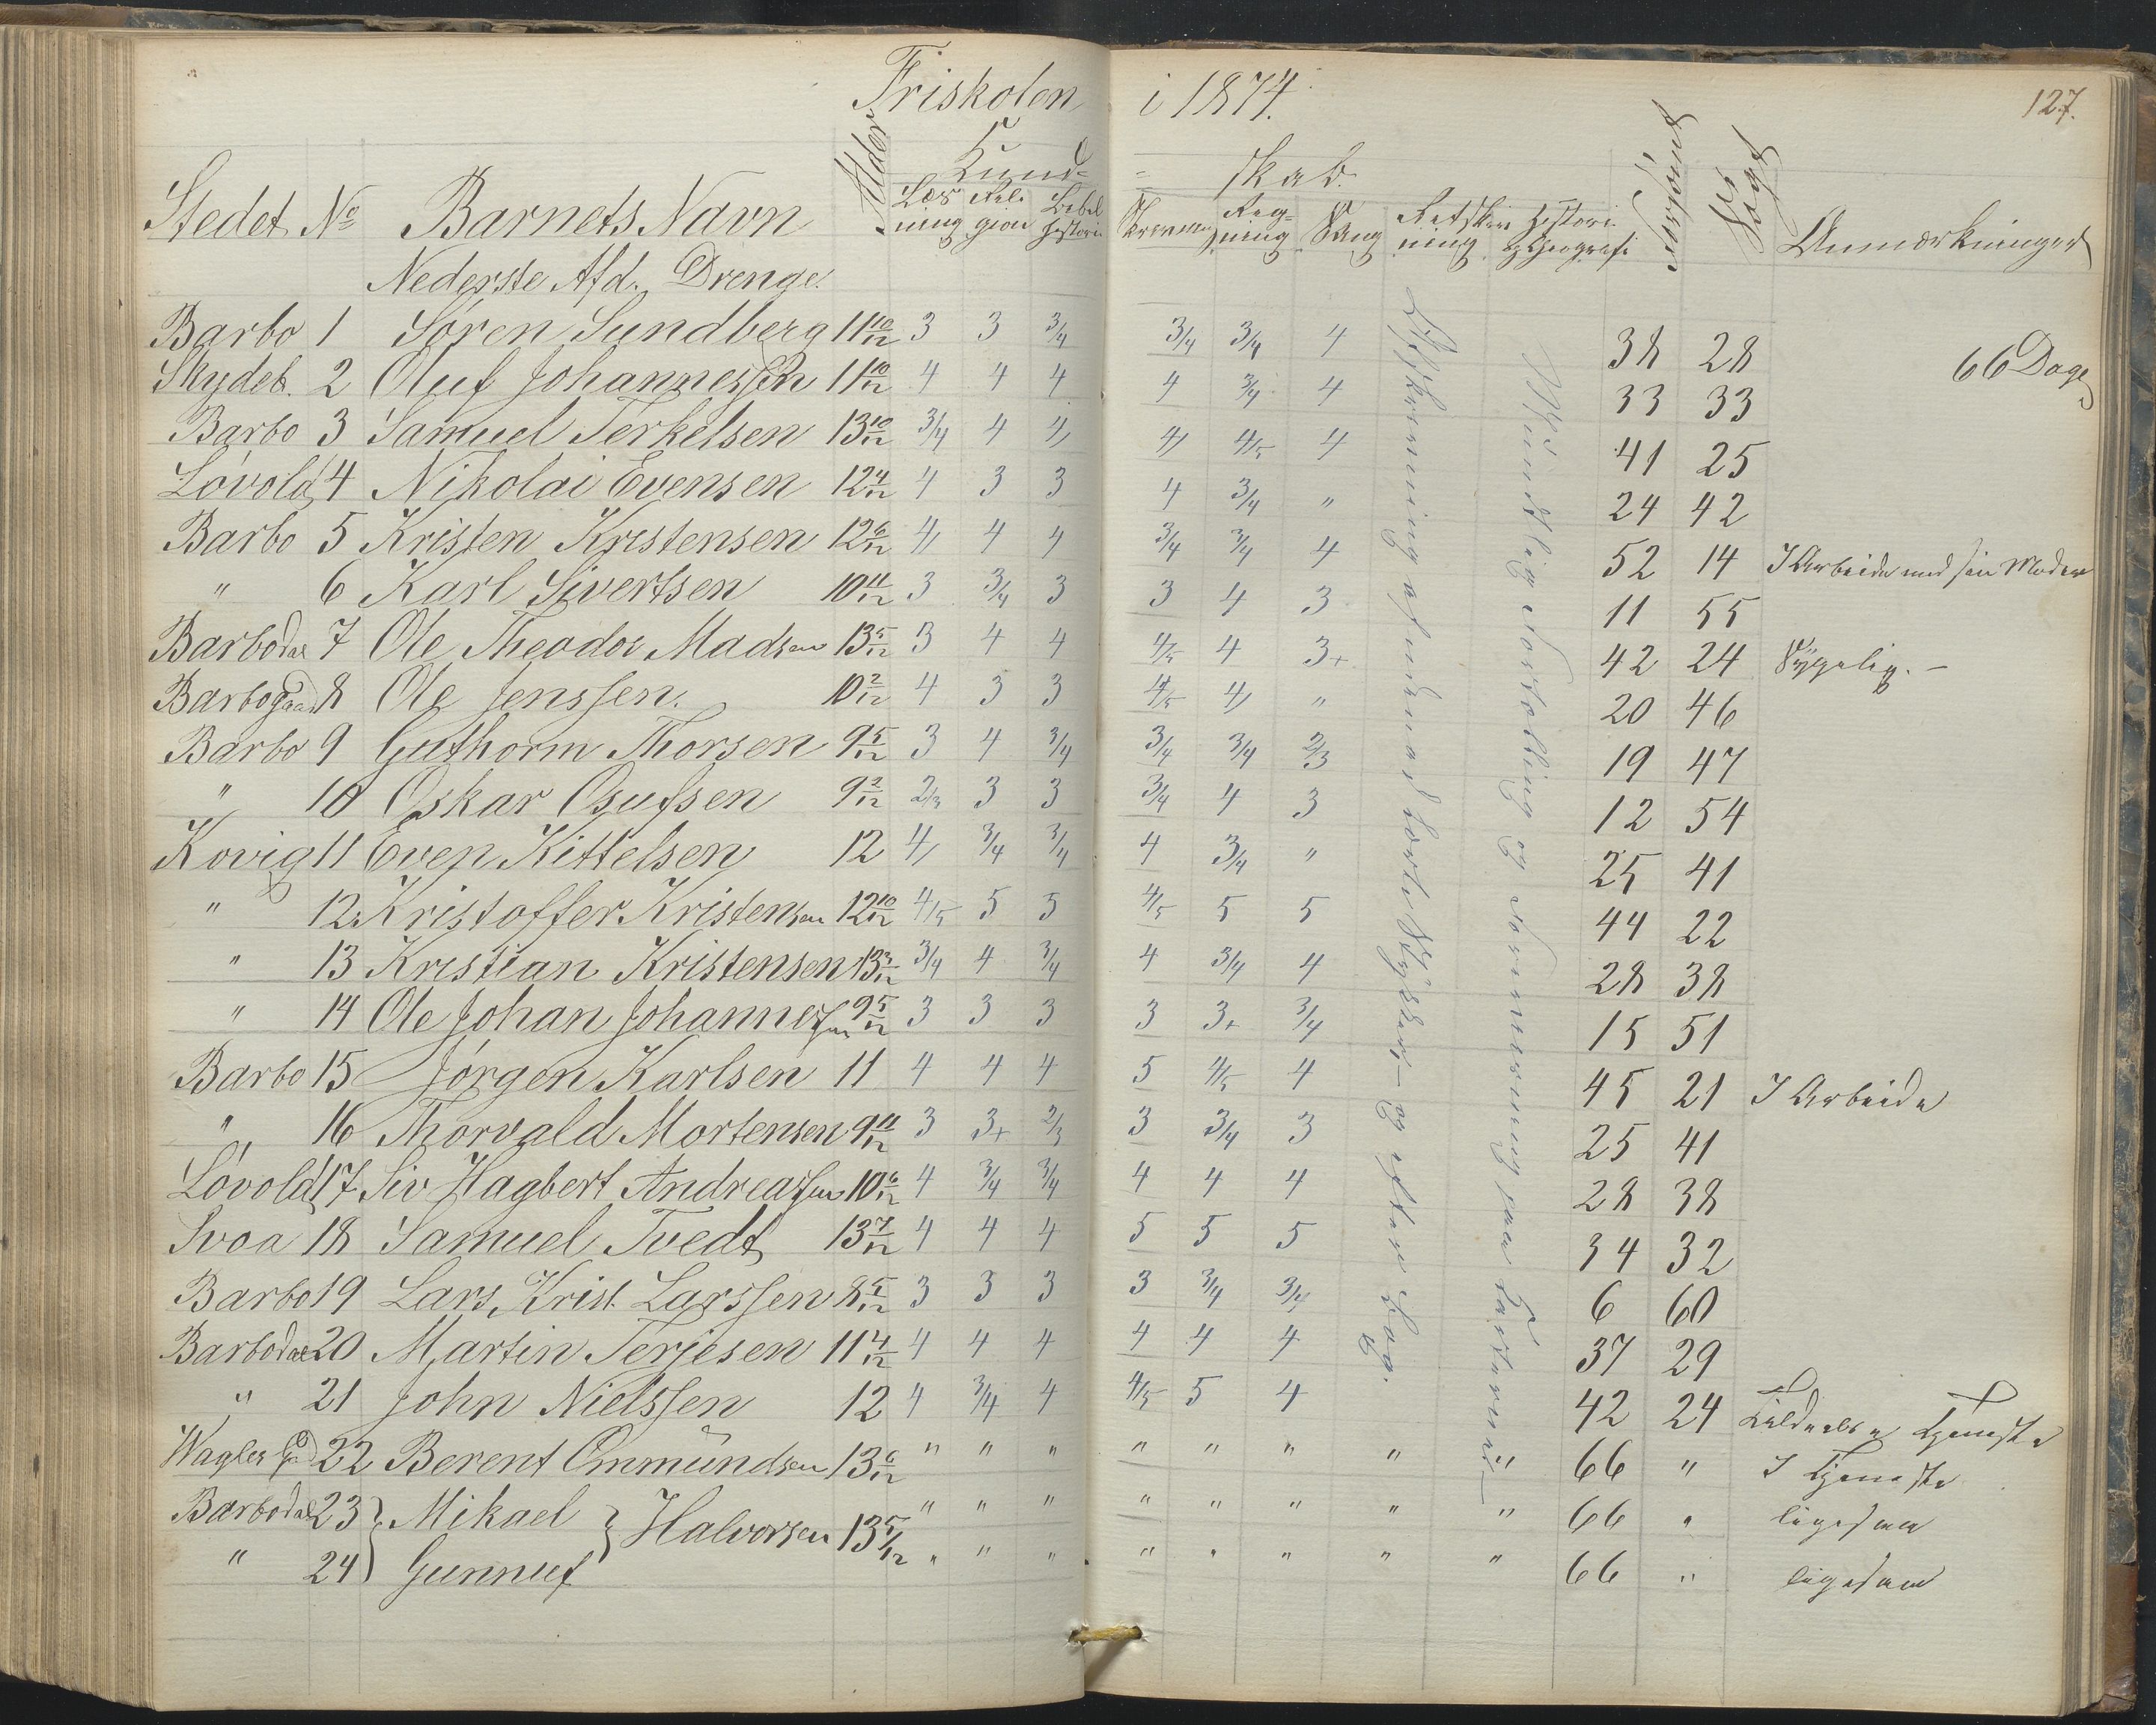 Friskolen i 1874.
127.
Kund= =skab.
Stedet No Barnets Navn Alder Læs ning Reli gion Bibel historie Skrivning Reg= ning Sang Retskriv ning Historie og Geografi Forsømt Søgt Anmærkninger
Nederste Afd. Drenge.
Barbo 1 Søren Sundberg 11 10/12 3 3 3/4 3/4 3/4 4 38 28 66 Dage
Skydeb. 2 Oluf Johannessen 11 10/12 4 4 4 4 3/4 4 33 33
Barbo 3 Samuel Terkelsen 13 10/12 3/4 4 4 4 4/5 4 41 25
Løvold 4 Nikolai Evensen 12 4/12 4 3 3 4 3/4 " 24 42
Barbo 5 Kristen Kristensen 12 6/12 4 4 4 3/4 3/4 4 52 14 I Arbeide med sin Moder
" 6 Karl Sivertsen 10 11/12 3 3/4 3 3 4 3 11 55
Barbodal 7 Ole Theodor Madsen 13 5/12 3 4 4 4/5 4 3+ 42 24 Sygelig. –
Barbogaard 8 Ole Jenssen. 10 2/12 4 3 3 4/5 4 " 20 46
Barbo 9 Guthorm Thorsen 9 5/12 3 4 3/4 3/4 3/4 2/3 19 47
" 10 Oskar Osufsen 9 2/12 2/3 3 3 3/4 4 3 12 54
Kovig 11 Even Kittelsen 12 4 3/4 3/4 4 3/4 " 25 41
" 12 Kristoffer Kristensen 12 10/12 4/5 5 5 4/5 5 5 44 22
" 13 Kristian Kristensen 13 3/12 3/4 4 3/4 4 3/4 4 28 38
" 14 Ole Johan Johannessen 9 5/12 3 3 3 3 3+ 3/4 15 51
Barbo 15 Jørgen Karlsen 11 4 4 4 5 4/5 4 45 21 I Arbeide
" 16 Thorvald Mortensen 9 11/12 3 3+ 2/3 3 3/4 3 25 41
Løvold 17 Siv Hagbert Andreassen 10 6/12 4 3/4 3/4 4 4 4 28 38
Svoa 18 Samuel Tvedt 13 7/12 4 4 4 5 5 5 34 32
Barbo 19 Lars Krist. Larssen 8 5/12 3 3 3 3 3/4 3/4 6 60
Barbodal 20 Martin Terjesen 11 4/12 4 4 4 4 4 4 37 29
" 21 John Nielssen 12 4 3/4 4 4/5 5 4 42 24 Tjeneste
Wagles Gd 22 Berent Ommundsen 13 6/12 " " " " " " " " 66 " I Tjeneste
Barbodal 23 Mikael } Halvorsen 13 5/12 " " " " " " " " 66 " ligesaa
" 24 Gunnuf " " " " " " " " 66 " ligesaa
Afskrivning af udenad lærte Stykker, – og efter Bog.
Mundtlig Fortælling og paa Karterne